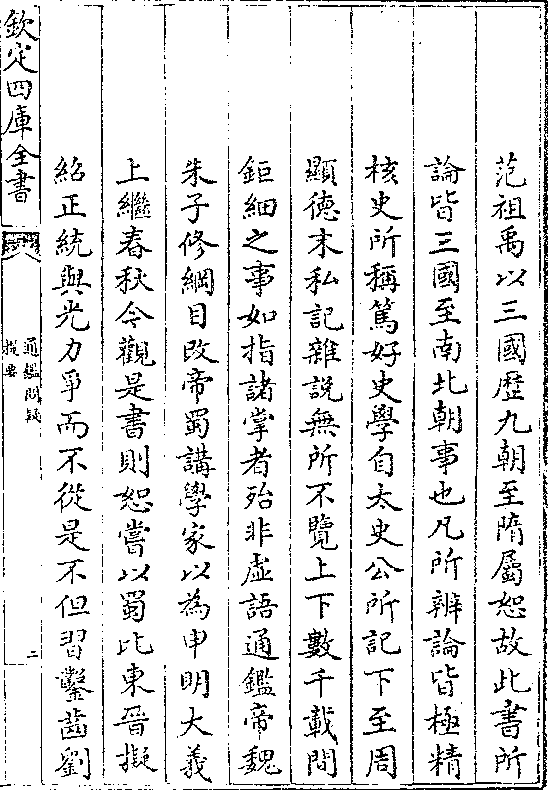 范祖禹以三國歴九朝至隋屬恕故此書所
論皆三國至南北朝事也凡所辨論皆極精
核史所稱篤好史學自太史公所記下至周
顯德末私記雜説無所不覽上下數千載間
鉅細之事如指諸掌者殆非虚語通鑑帝魏
朱子修綱目改帝蜀講學家以為申明大義
上繼春秋今觀是書則恕嘗以蜀比東晉擬
紹正統與光力爭而不從是不但習鑿齒劉
欽定四庫全書
通鑑問疑
提要
二